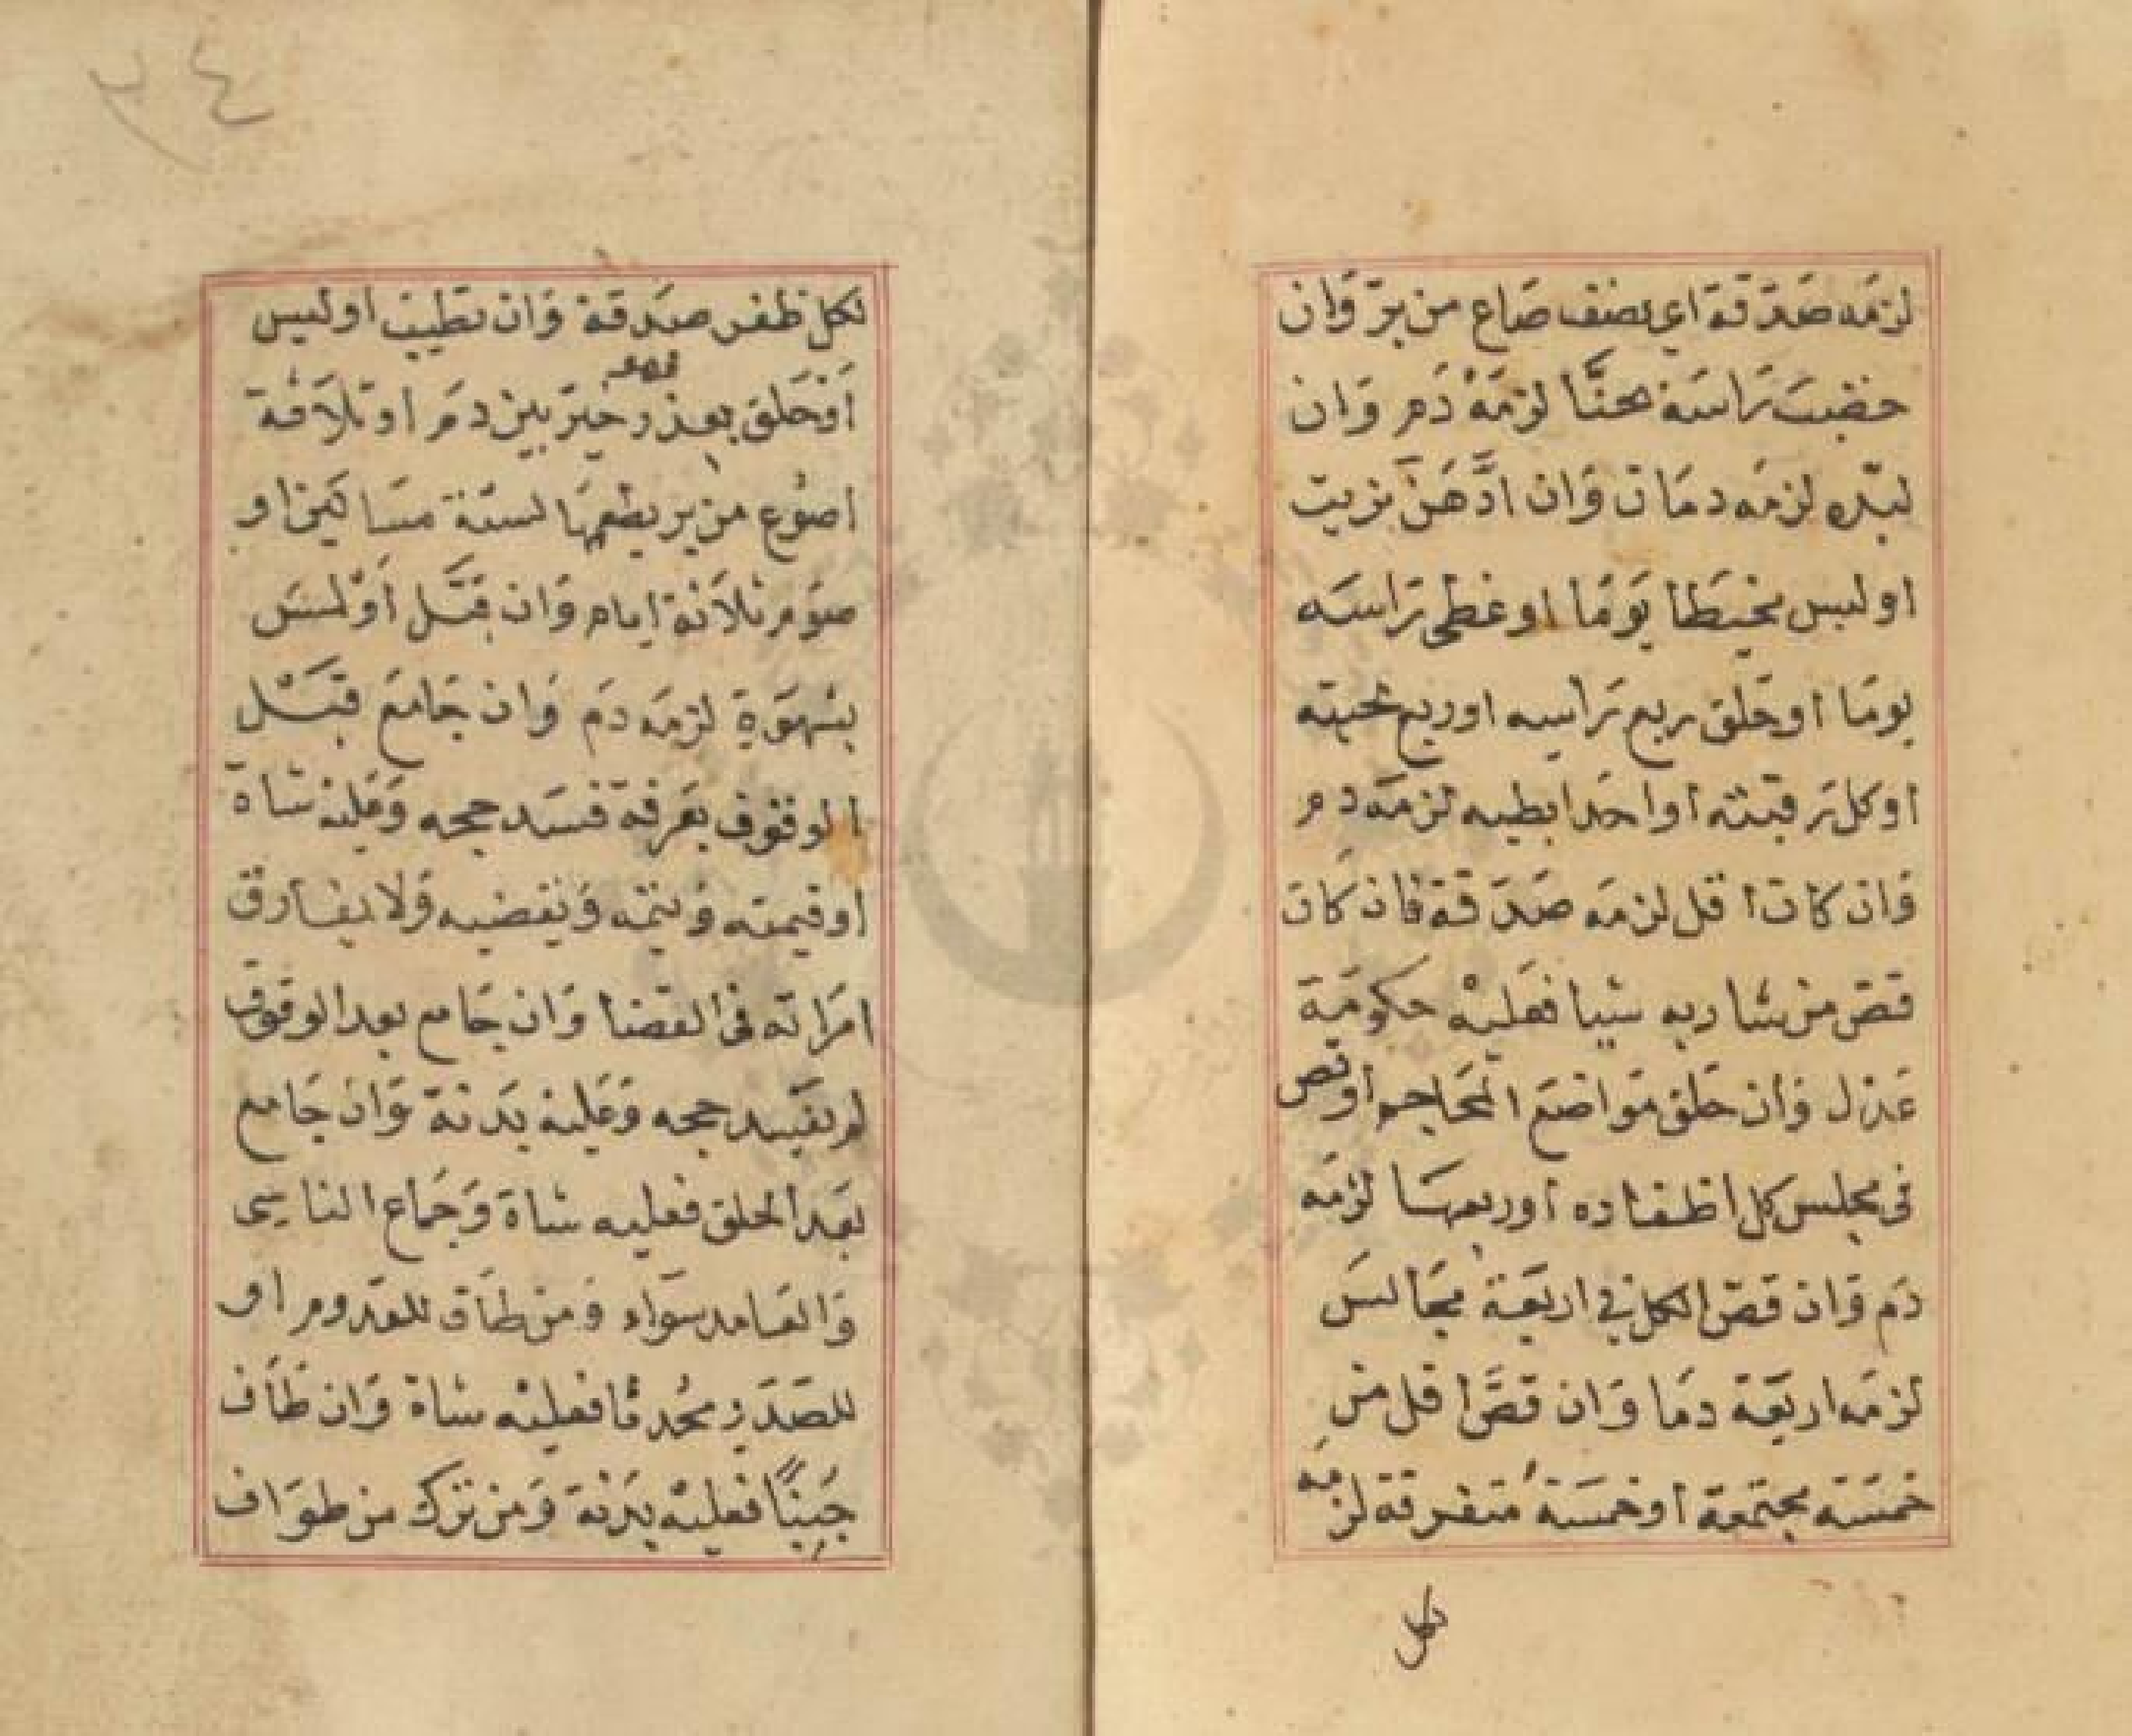 لزمه صدقة اي نصف صاع من بر وان
خضبت راسه بحنا لزمه دم وان
لبده لزمه دمان وان ادهن بزيت
او لبس مخيطا يوما او غطى راسه
يوما او حلق ربع راسه او ربع لحيته
او كل رقبته او احدابطيه لزمه دم
وان كان اقل لزمه صدقة فان كان
قص من شاربه شيا فعليه حكومة
عدل وان حلق مواضع المحاجم او قص
في مجلس كل اظفاره او ربعها لزمه
دم وان قص الكل في اربعة مجالس
لزمه اربعة دما وان قص اقل من
خمسة مجتمعة او خمسة متفرقة لزمه
لكل
٣٤
لكل ظفر صدقة وان تطيب او لبس
او حلق بعذر خير بين دم او ثلاثة
اصوع من بر يطعمها لستة مساكين او
صوم ثلاثة ايام وان قبل او لمس
بشهوة لزمه دم وان جامع قبل
الوقوف بعرفة فسد حجه وعليه شاة
او قيمته ويتمه ويقضيه ولا يفارق
امراته في القضا وان جامع بعد الوقوف
لم يفسد حجه وعليه بدنة وان جامع
بعد الحلق فعليه شاة وجماع الناسي
والعامد سواء ومن طاف للقدوم او
للصدر محدثا فعليه شاة وان طاف
جنبا فعليه بدنة ومن ترك من طواف